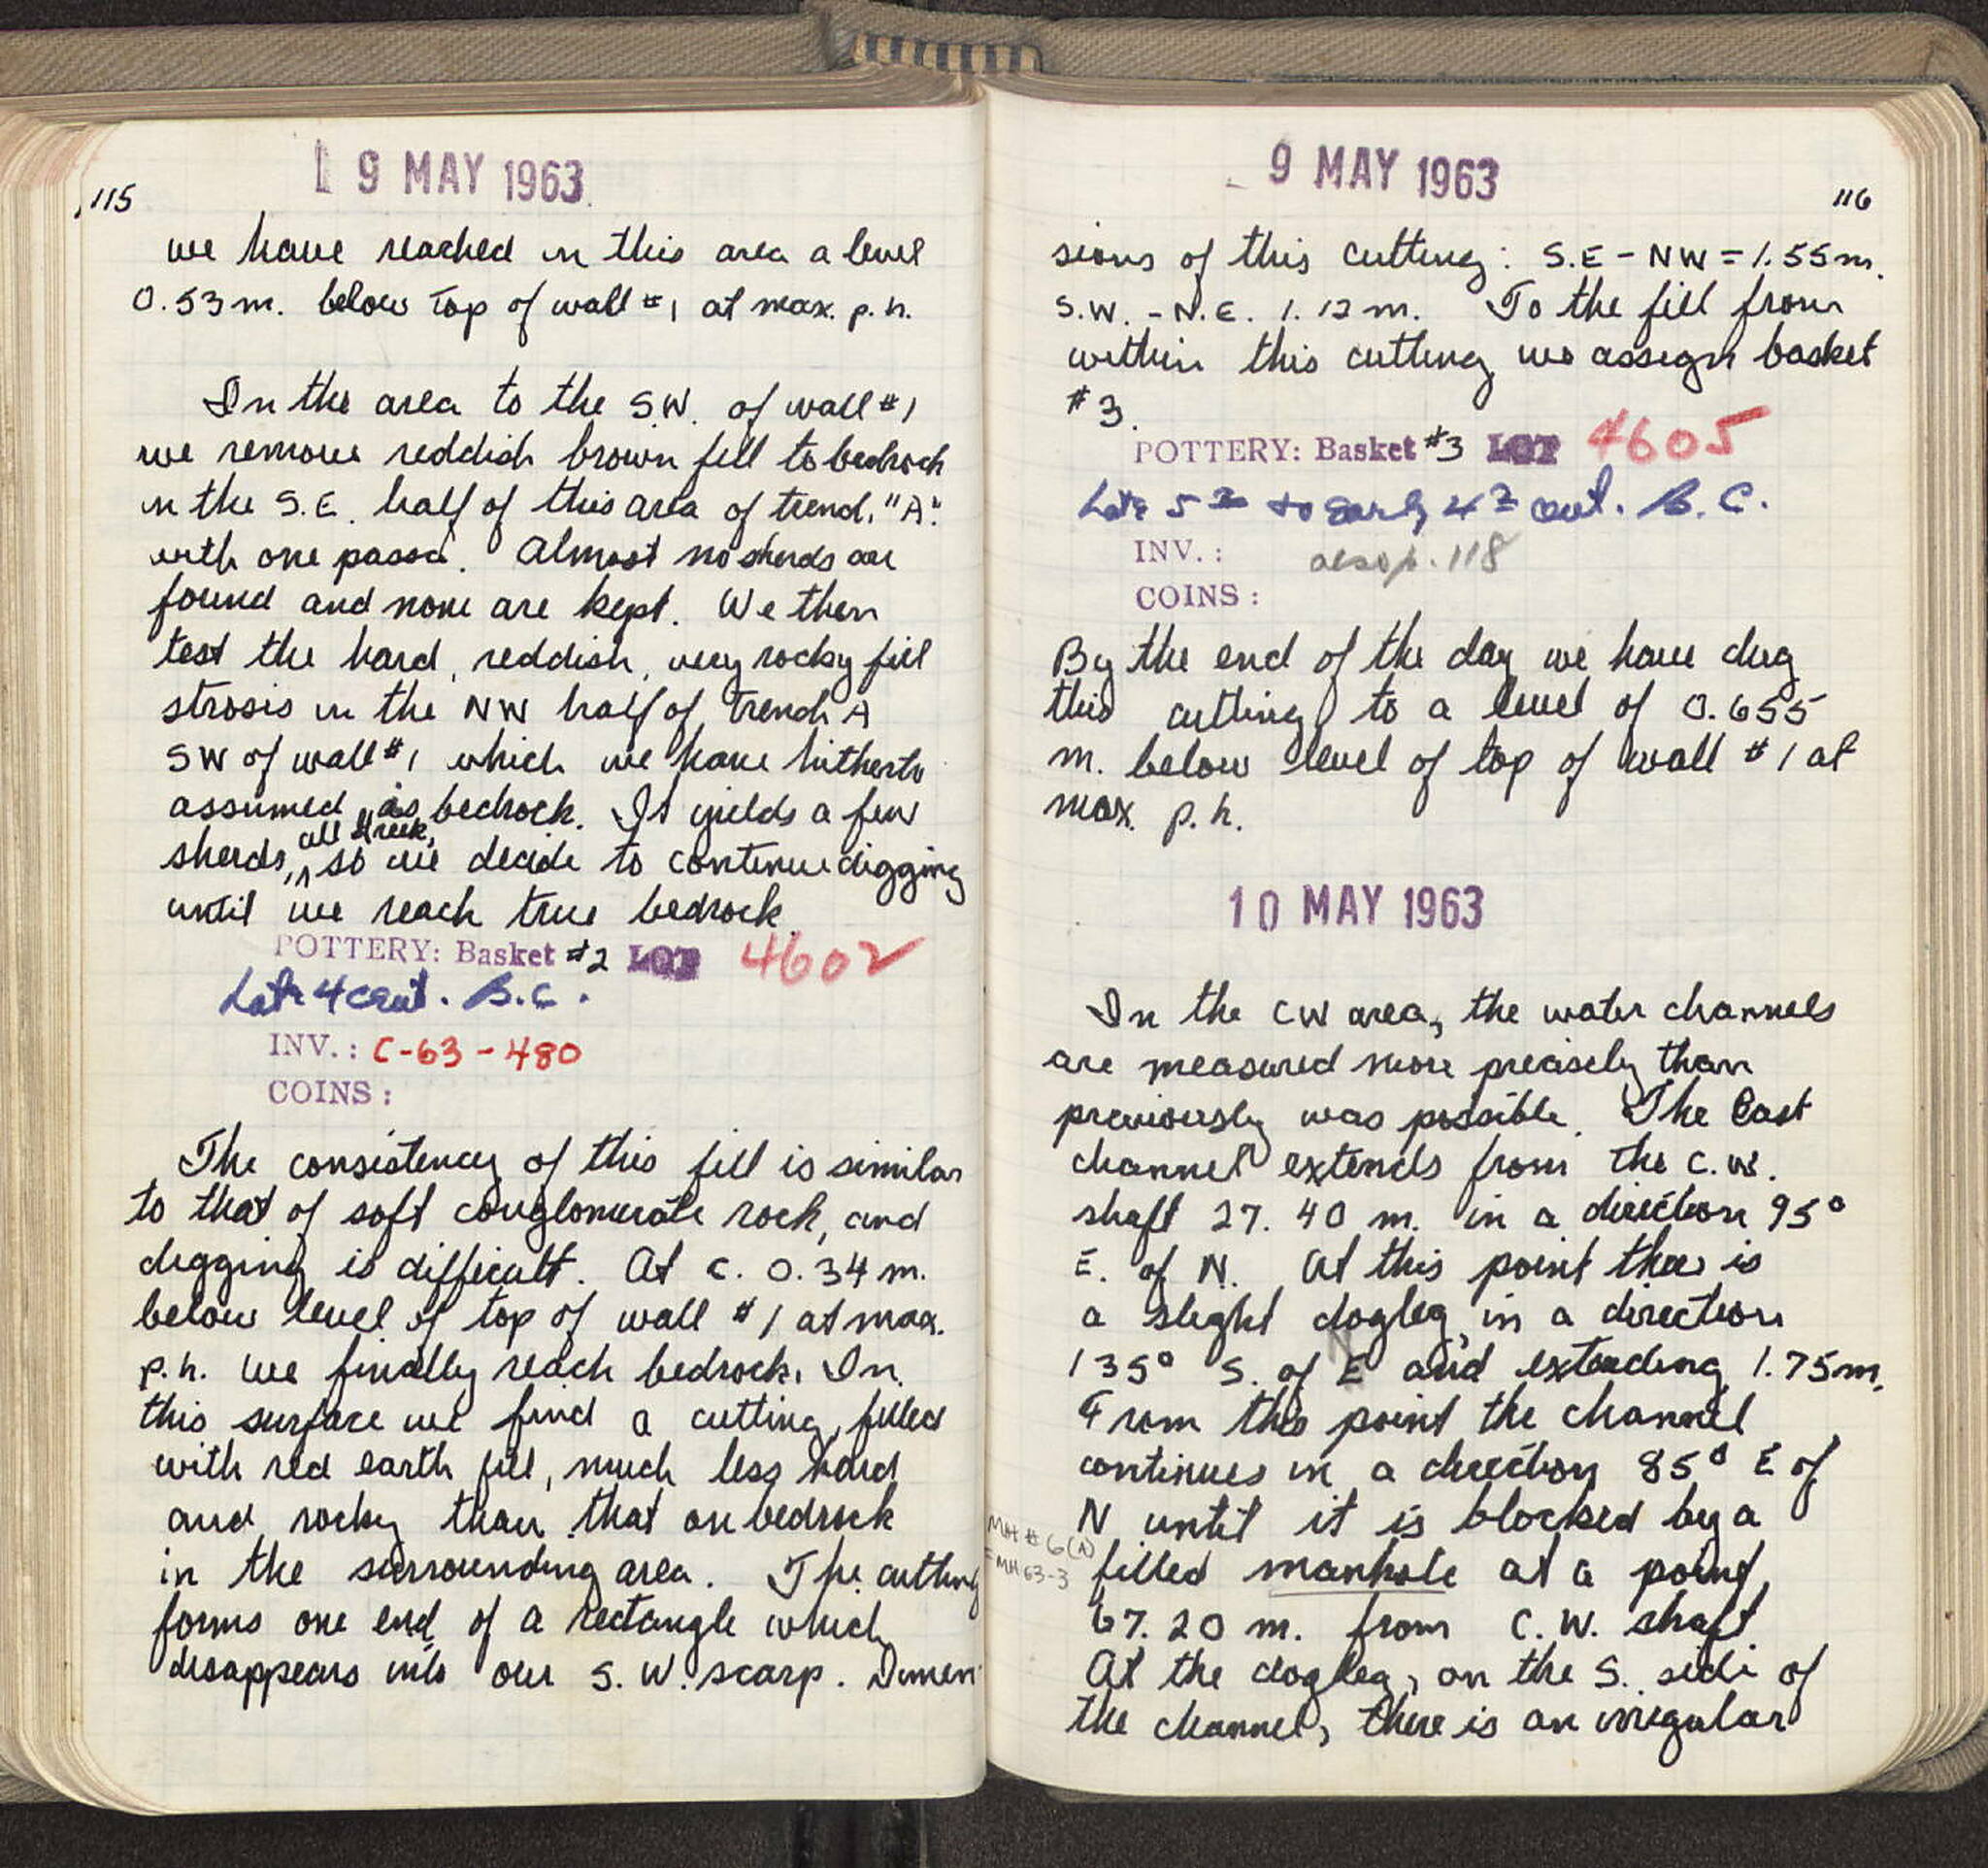 115
9 MAY 1963
we have reached in this area a level
0.53 m. below top of wall #1 at max. p. h.
In the area to the SW. of wall #1
we remove reddish brown fill to bedrock
in the S.E. half of this area of trench "A"
with one passa. Almost no sherds are
found and none are kept. We then
test the hard, reddish, very rocky fill
strosis in the NW half of trench A
SW of wall #1 which we have hitherto
assumed as bedrock. It yields a few
all Greek,
sherds, ^ so we decide to continue digging
until we reach true bedrock.
POTTERY: Basket #2 LOT 4602
Late 4 cent. B.C.
INV.: C-63-480
COINS:
The consistency of this fill is similar
to that of soft conglomerate rock, and
digging is difficult. At c. 0.34 m.
below level of top of wall #1 at max.
p.h. we finally reach bedrock. In
this surface we find a cutting, filled
with red earth fill, much less hard
and rocky than that on bedrock
in the surrounding area. The cutting
forms one end of a rectangle which
disappears into our S.W. scarp. Dimen
9 MAY 1963
116
sions of this cutting: S.E - NW = 1.55m.
S.W. - N.E. 1.12 m. To the fill from
within this cutting we assign basket
#3.
POTTERY: Basket #3 LOT 4605
Late 5th to early 4th cent. B.C.
INV.: also p. 118
COINS:
By the end of the day we have dug
this cutting to a level of 0.655
m. below level of top of wall #1 at
max. p.h.
10 MAY 1963
In the CW area, the water channels
are measured more precisely than
previously was possible. The East
channel extends from the C.W.
shaft 27.40 m. in a direction 95°
E. of N. At this point there is
a slight dogleg, in a direction
135° S. of E and extending 1.75m.
From this point the channel
continues in a direction 85° E of
N until it is blocked by a
MH # 6 (A)
= MH 63-3
filled manhole at a point
67.20 m. from C.W. shaft
At the dogleg, on the S. side of
the channel, there is an irregular